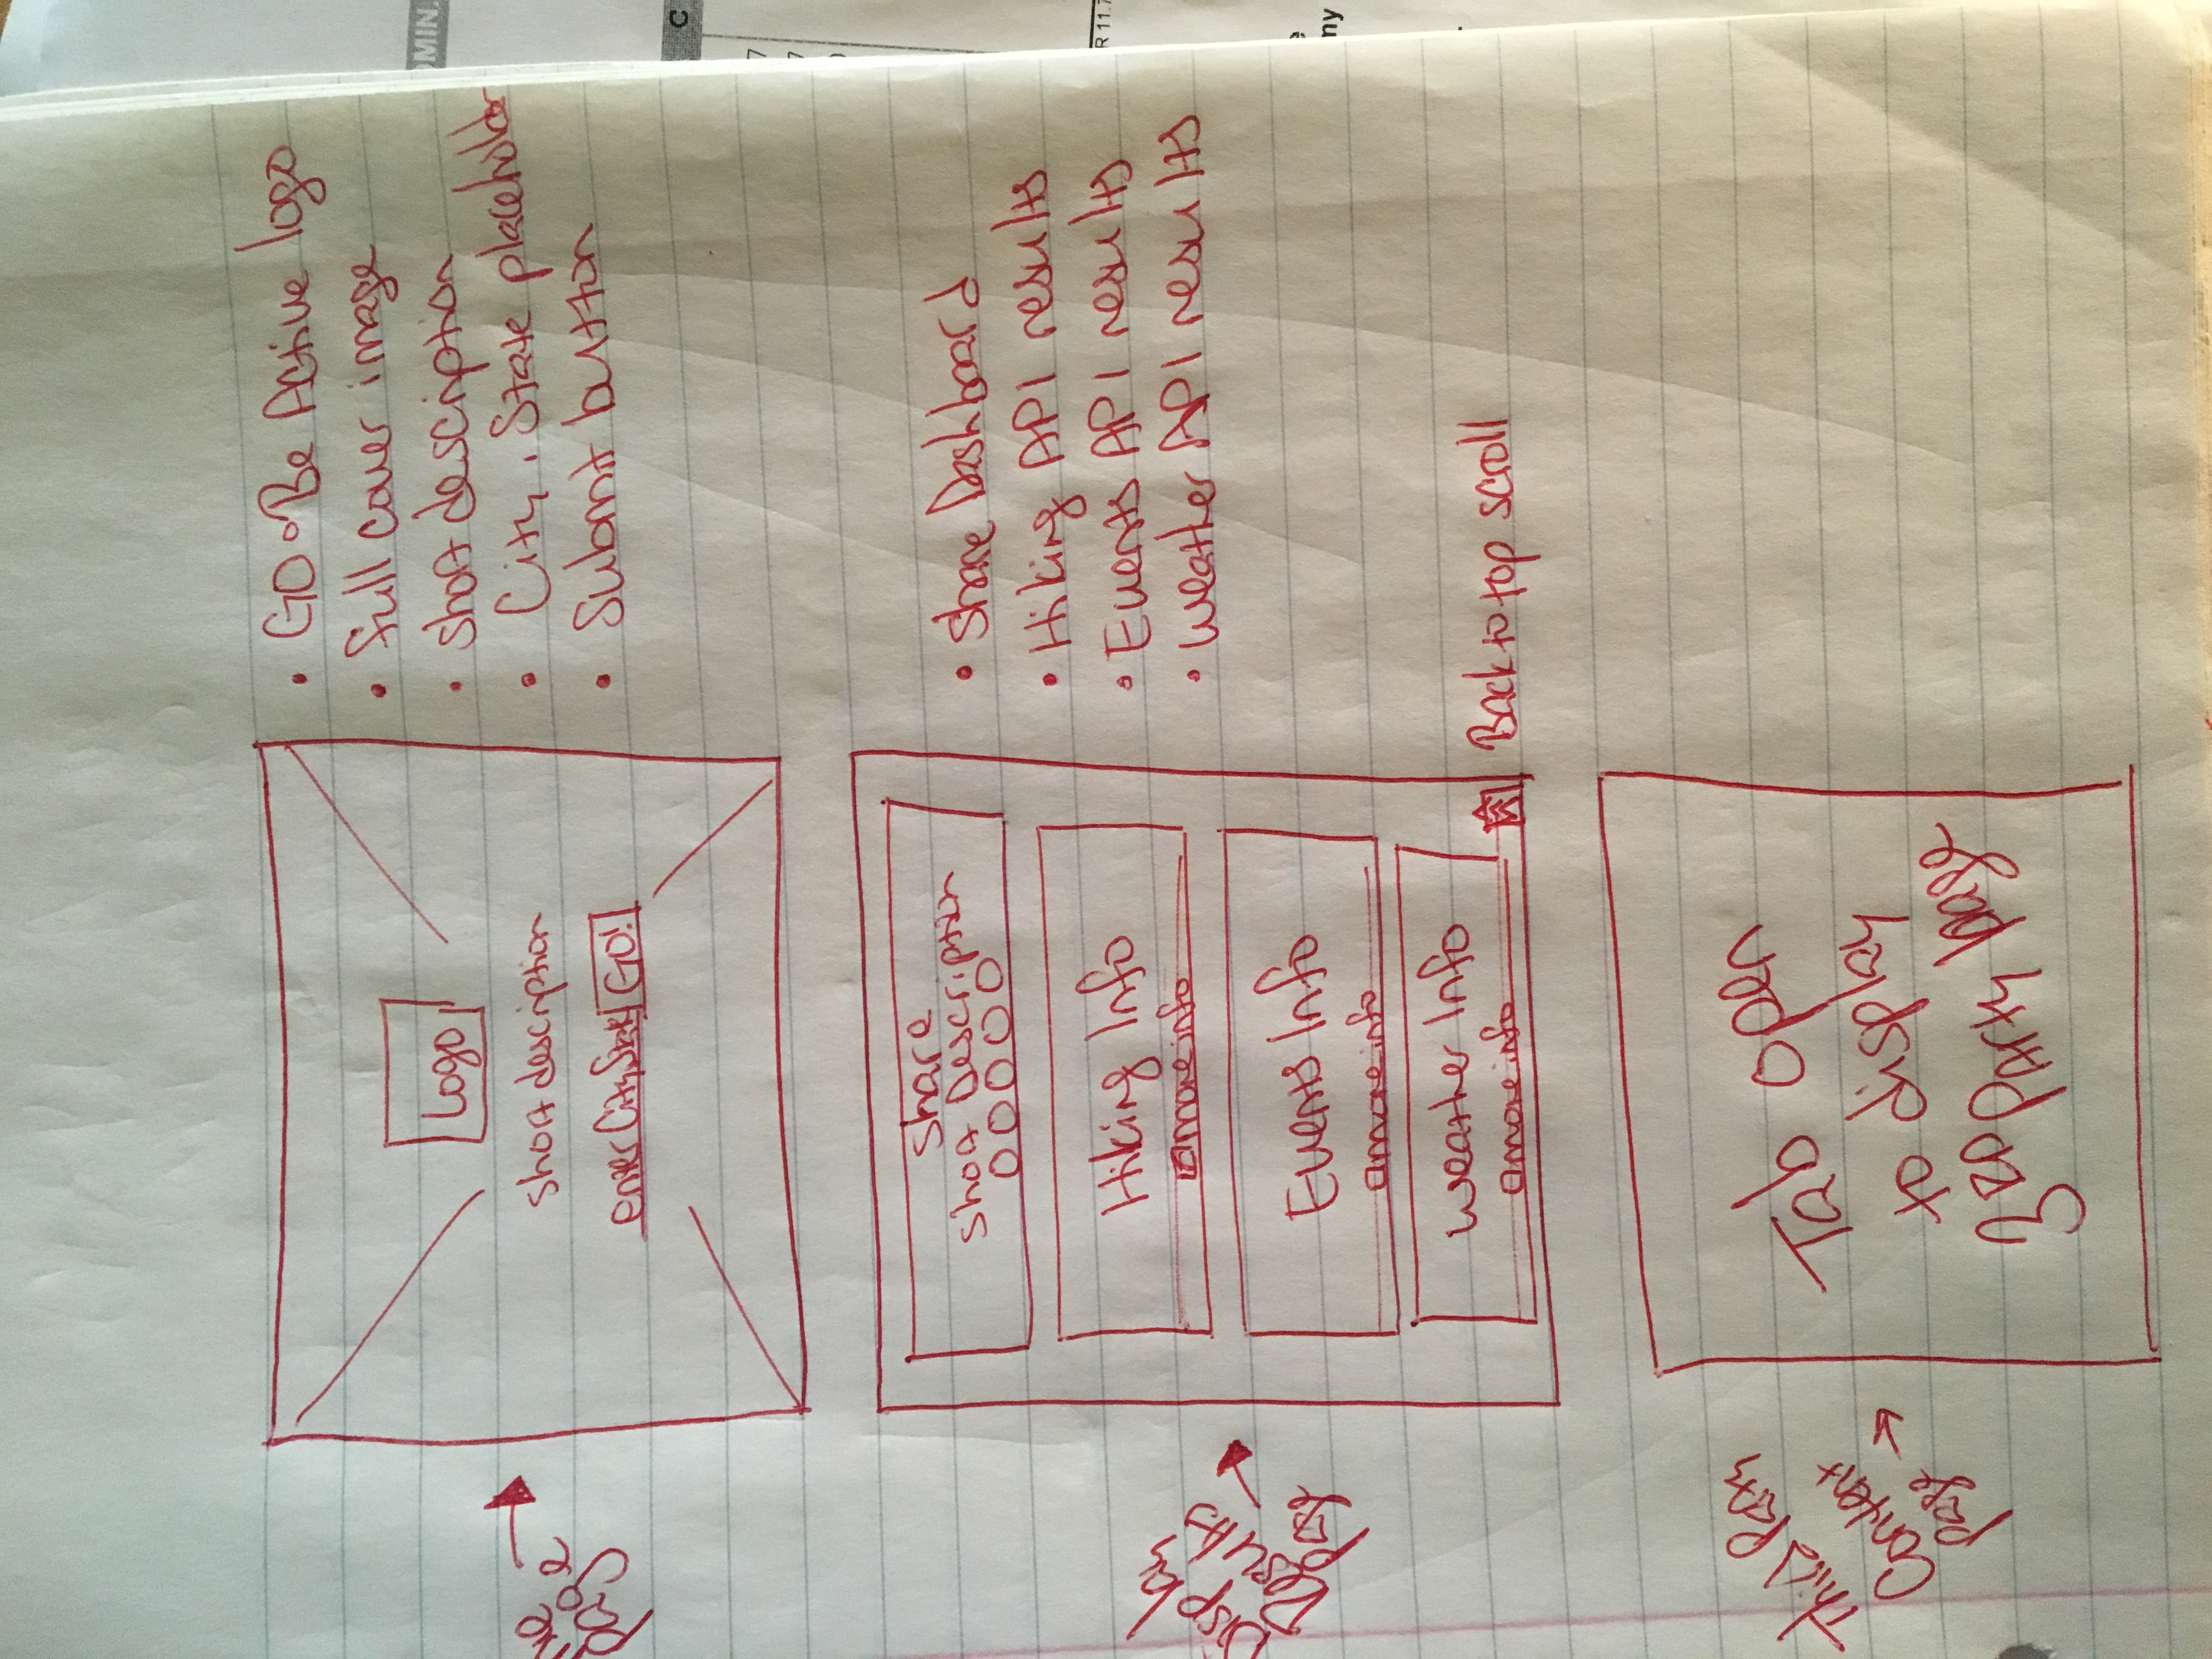 page
Logo
short description
enter City, State GO!
• GO • Be Active logo
• full cover image
• short description
• City, State placeholder
• Submit button
Display
Results
page
Share
Short Description
Hiking Info
more info
Events Info
more info
Weather Info
more info
• Share Dashboard
• Hiking API results
• Events API results
• Weather API results
Back to top scroll
Third Party
Content
page
Tab open
to display
3RD Party page
DMIN.
C
7
7
R 11.7
my